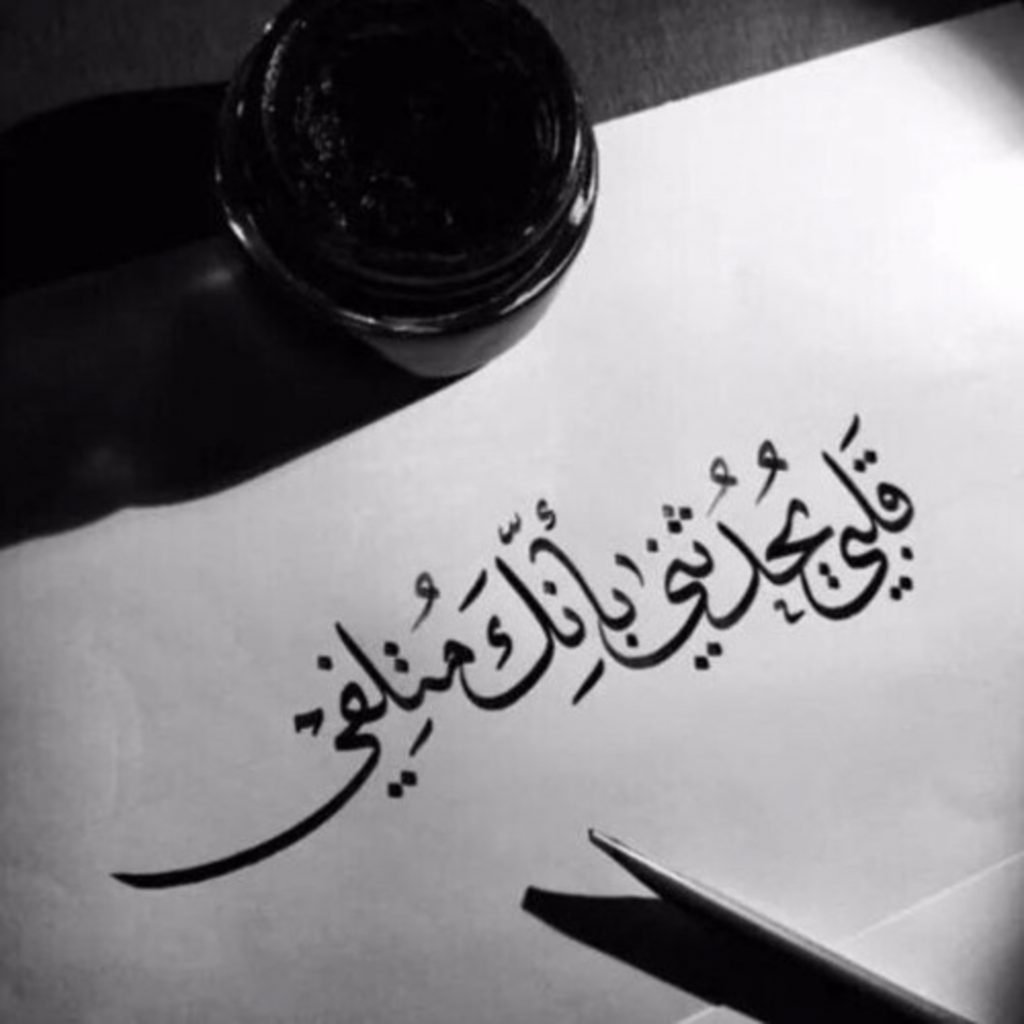 قَلبي يُحُدثني بِأنّكَ مُتِلفي